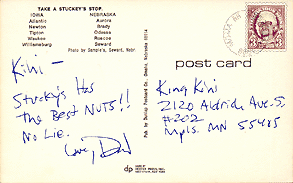 TAKE A STUCKEY'S STOP
IOWA NEBRASKA
Atlantic Aurora
Newton Brady
Tipton Odessa
Waukee Roscoe
Williamsburg Seward
Photo by Sample's, Seward, Nebr.
Kini –
Stucky's Has
The Best NUTS!!
No Lie.
Love, Dad
Pub. by Dunlap Postcard Co., Omaha, Nebraska
post card
King Kini
2120 Aldrich Ave. S.
#202
Mpls. MN 55405
dp